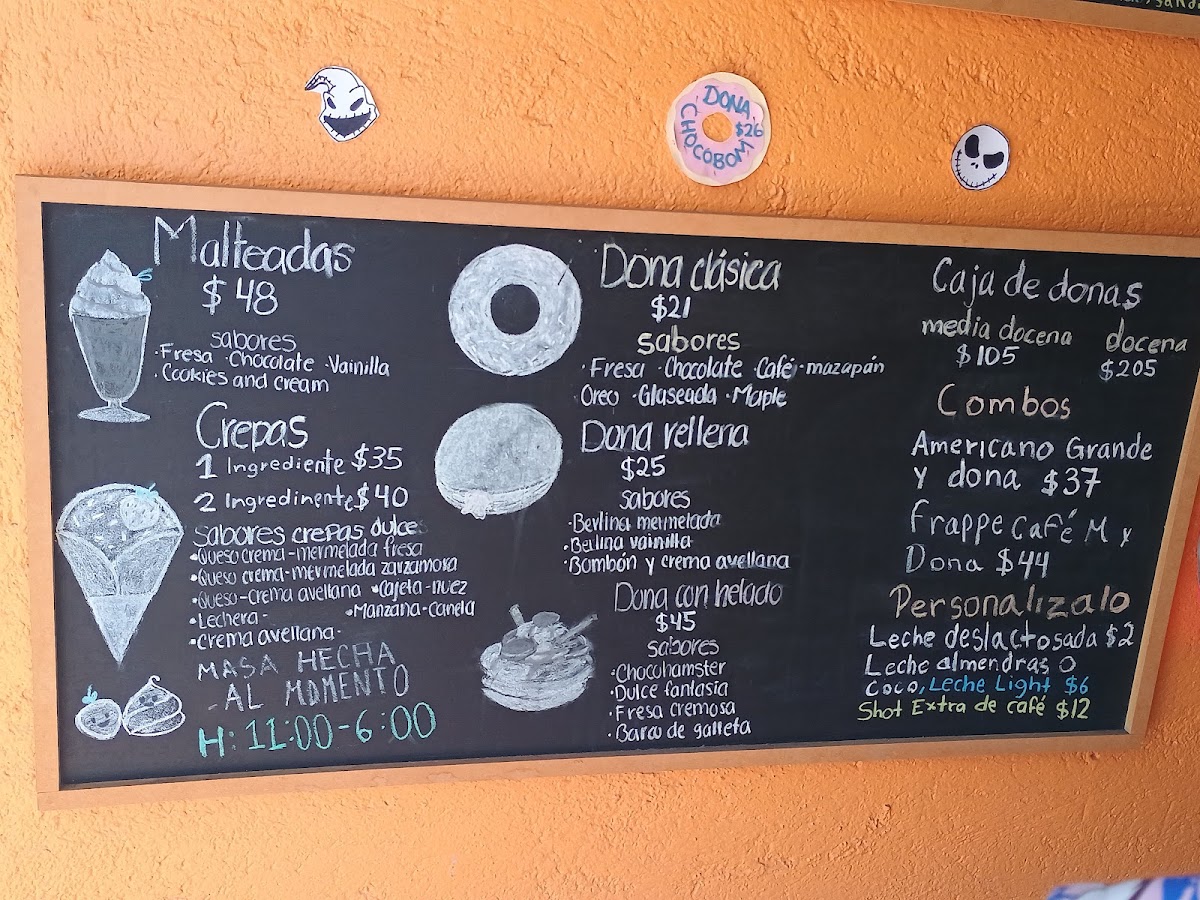 DONA
CHOCOBOM
$26
Malteadas
$48
sabores
·Fresa ·Chocolate ·Vainilla
·Cookies and cream
Crepas
1 Ingrediente $35
2 Ingredinente $40
sabores crepas dulces
•Queso crema-mermelada fresa
•Queso crema-mermelada zarzamora
•Queso-crema avellana •Cajeta-nuez
•Lechera- •Manzana-canela
•Crema avellana-
MASA HECHA
AL MOMENTO
H: 11:00-6:00
Dona clásica
$21
sabores
·Fresa ·Chocolate ·Café ·mazapán
·Oreo ·Glaseada ·Maple
Dona rellena
$25
sabores
·Berlina mermelada
·Berlina vainilla
·Bombón y crema avellana
Dona con helado
$45
sabores
·Chocohamster
·Dulce fantasía
·Fresa cremosa
·Barco de galleta
Caja de donas
media docena docena
$105 $205
Combos
Americano Grande
y dona $37
Frappe Café M y
Dona $44
Personalizalo
Leche deslactosada $2
Leche almendras o
Coco, Leche Light $6
Shot Extra de café $12